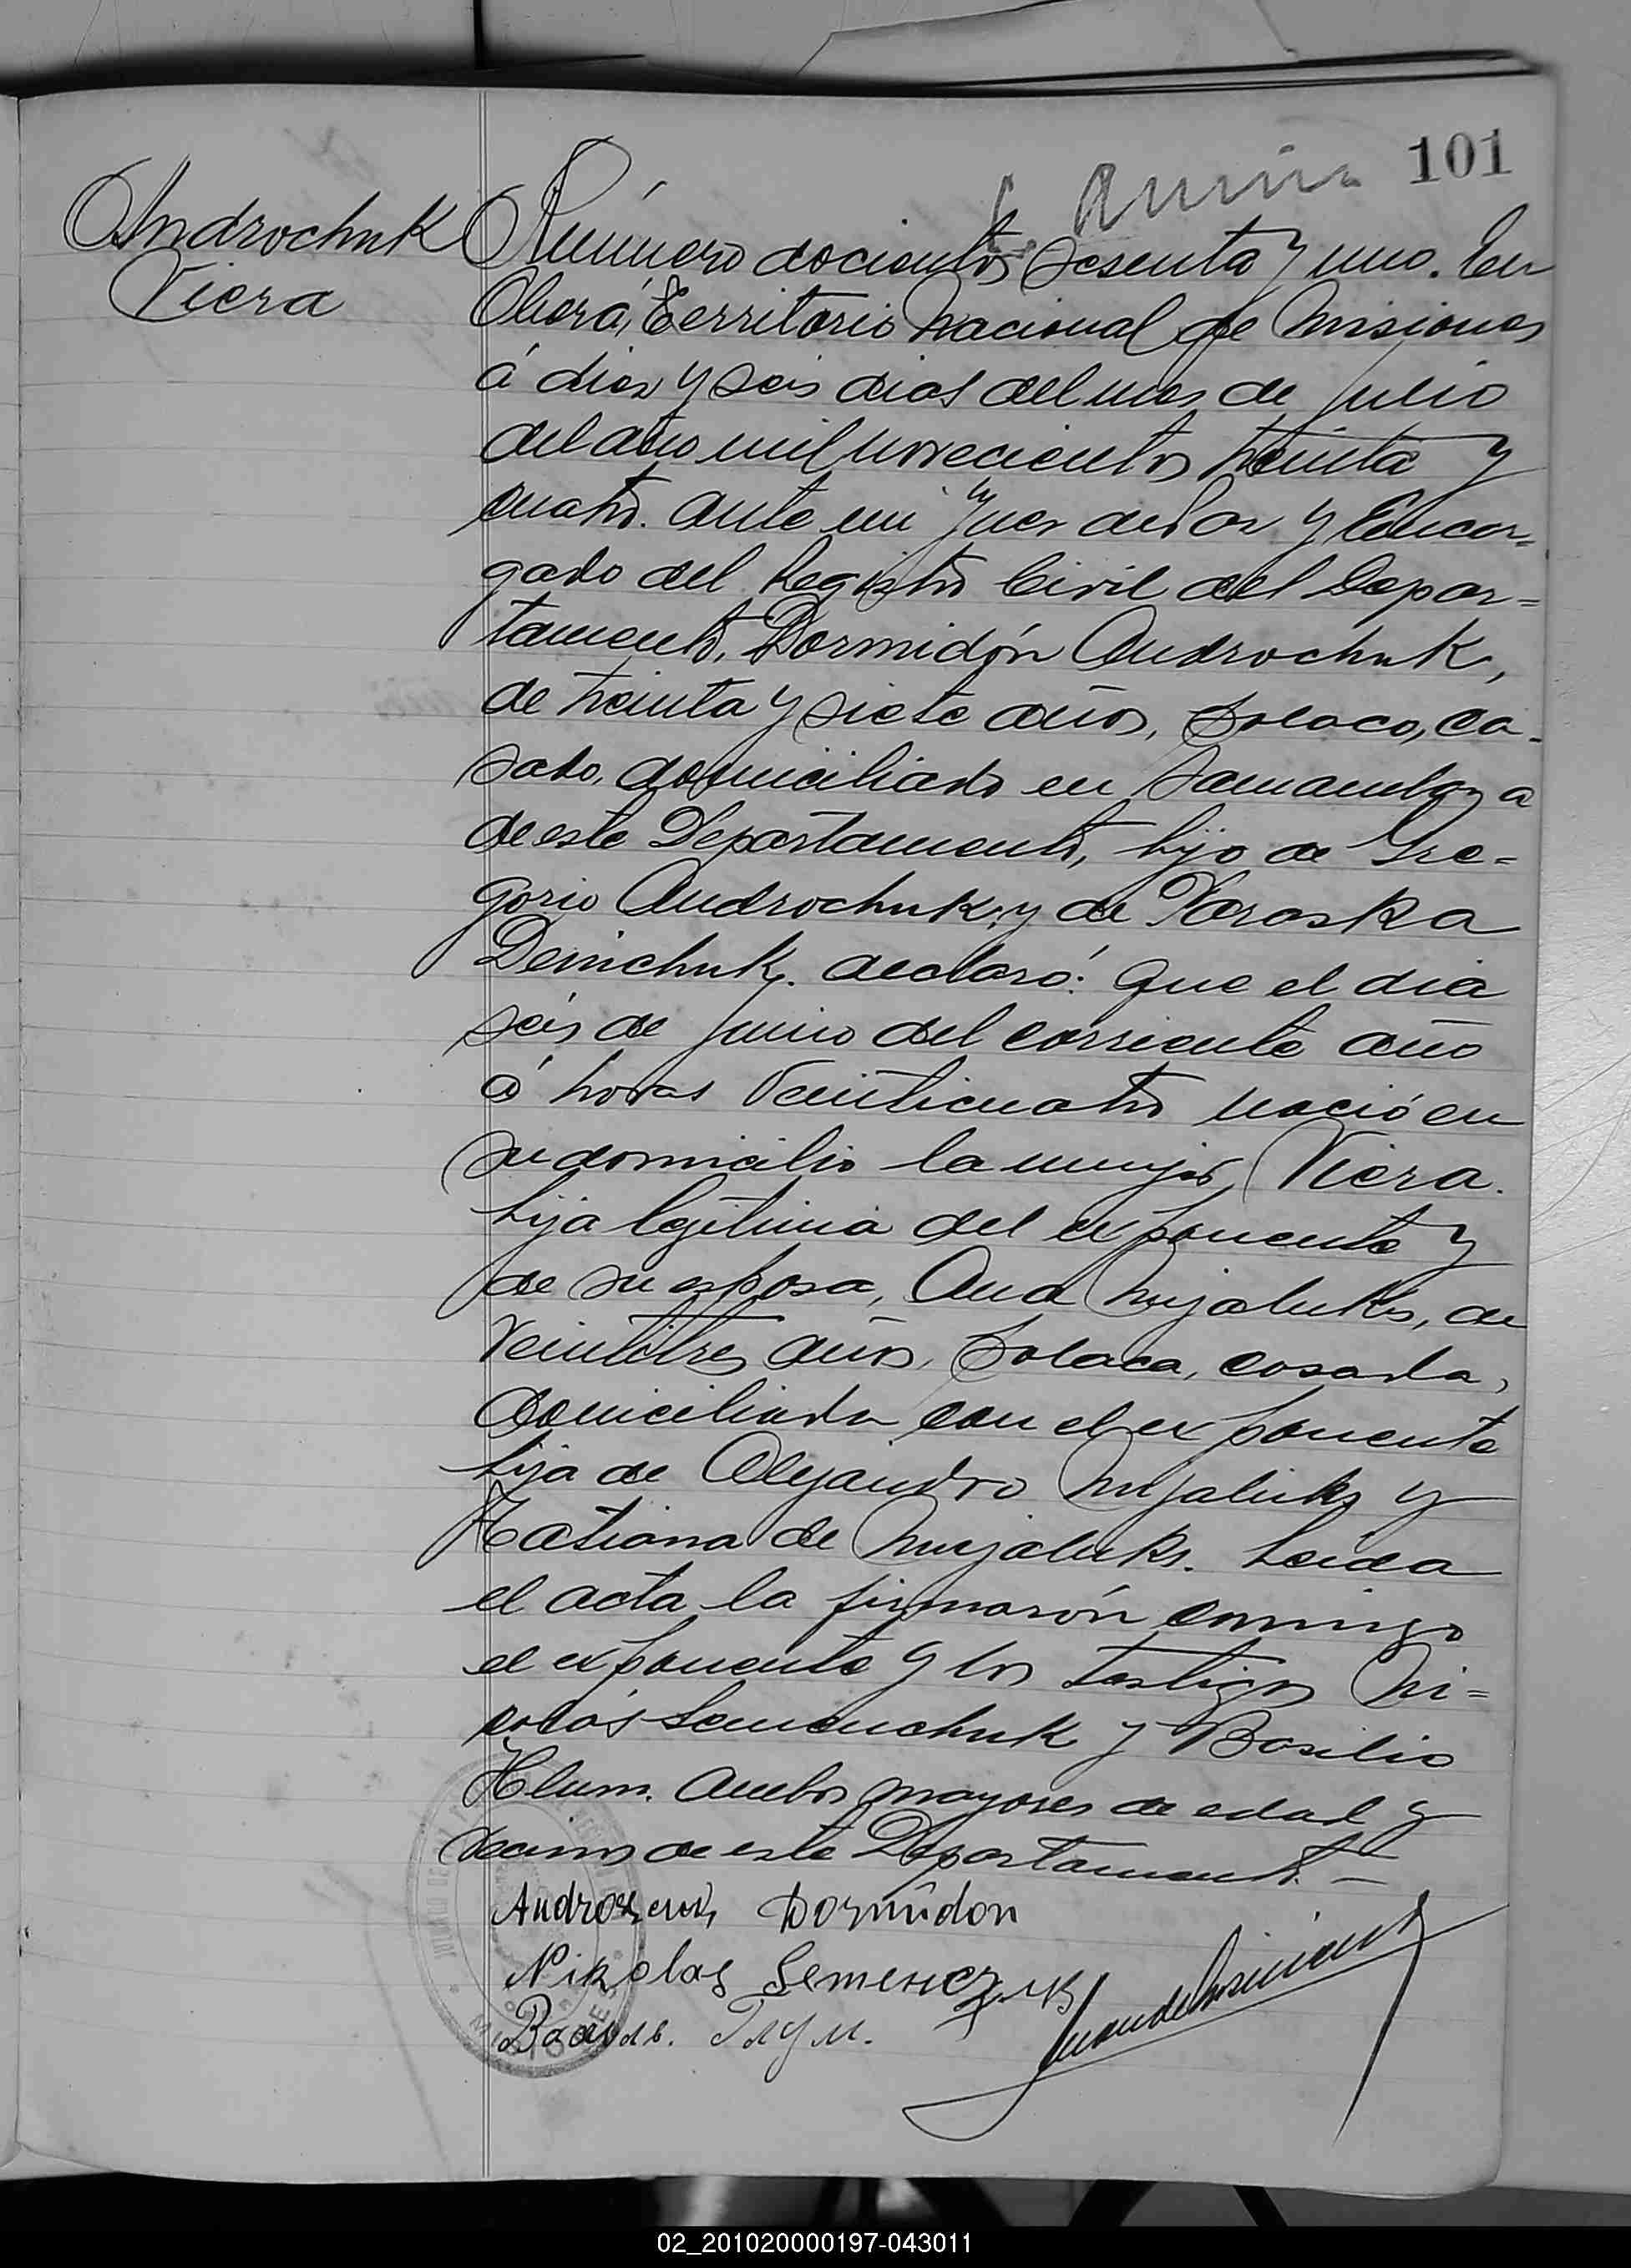 101
Androchuk
Viera
Número docientos sesenta y uno. En
Oberá, Territorio Nacional de Misiones
á diez y seis dias del mes de julio
del año mil novecientos treinta y
cuatro. Ante mi Juez de Paz y Encar=
gado del Registro Civil del Depar=
tamento, Dormidón Androchuk,
de treinta y siete años, polaco, ca-
sado, domiciliado en Samambaya
de este Departamento, hijo de Gre=
gorio Androchuk, y de Paraska
Demchuk. declaró: Que el dia
seis de junio del corriente año
á horas veinticuatro nació en
su domicilio la mujer, Viera.
hija legitima del exponente y
de su esposa, Ana Mijaluks, de
veintitres años, polaca, casada,
domiciliada con el exponente
hija de Alejandro Mijaluks y
Tatiana de Mijaluks. Leida
el acta la firmarón conmigo
el exponente y los testigos Ni=
colás Semenchuk y Basilio
Hlum. Ambos mayores de edad y
vecinos de este Departamento. —
Dormidon
Nikolas
Глум.
02_201020000197-043011